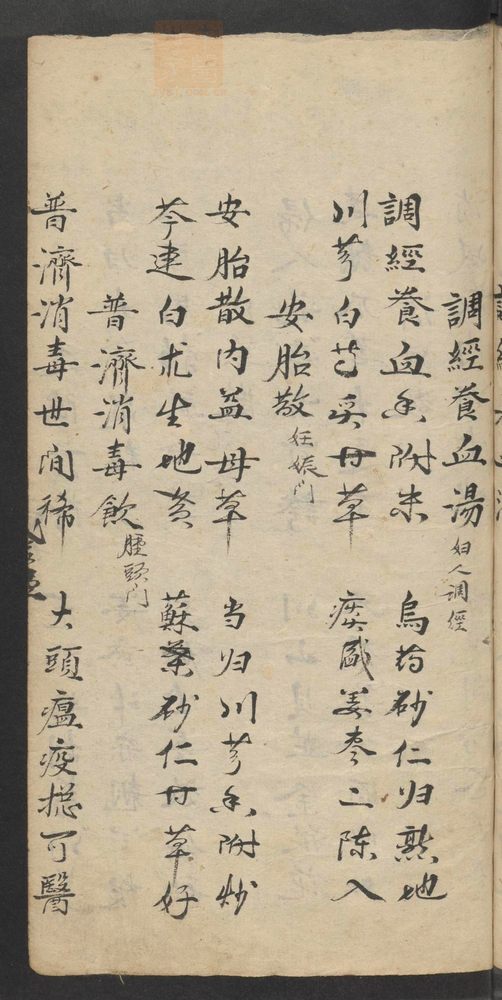 調經養血湯 妇人調經
調經養血香附末 烏药砂仁归熟地
川芎白芍炙甘草 痰盛姜枣二陈入
安胎散 妊娠门
安胎散内益母草 当归川芎香附炒
芩連白朮生地黄 蘇葉砂仁甘草好
普濟消毒飲 腫頭门
普濟消毒世间稀 大頭瘟疫摠可醫